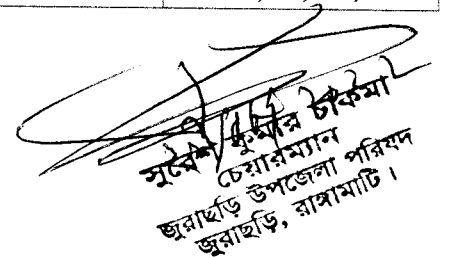 সুরেশ কুমার চাকমা
চেয়ারম্যান
জুরাছড়ি উপজেলা পরিষদ
জুরাছড়ি, রাঙ্গামাটি।